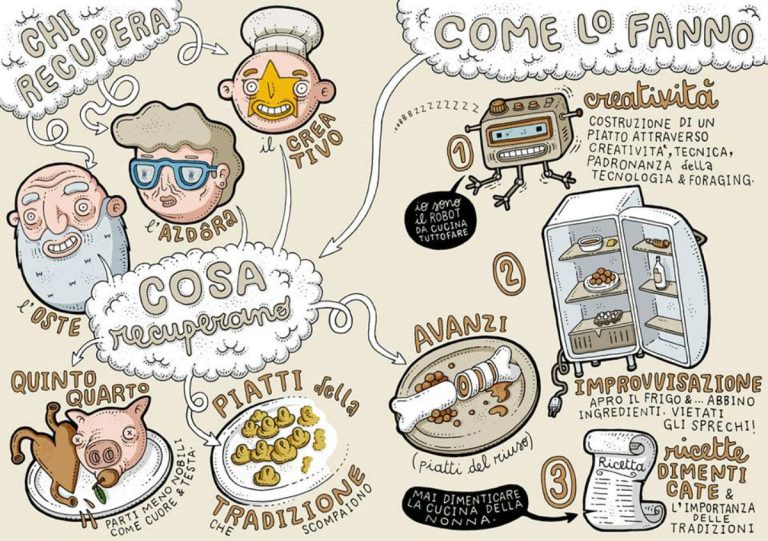 CHI
RECUPERA
il CREA
TIVO
l'AZDÔRA
l'OSTE
COSA
recuperano
QUINTO
QUARTO
PARTI MENO NOBILI
COME CUORE & TESTA
PIATTI della
TRADIZIONE
CHE SCOMPAIONO
AVANZI
(piatti del riuso)
MAI DIMENTICARE
LA CUCINA DELLA
NONNA.
COME LO FANNO
BBBZZZZZZZZ
1
creatività
COSTRUZIONE DI UN
PIATTO ATTRAVERSO
CREATIVITA', TECNICA,
PADRONANZA della
TECNOLOGIA & FORAGING.
io sono
il ROBOT
DA CUCINA
TUTTOFARE
2
IMPROVVISAZIONE
APRO IL FRIGO &... ABBINO
INGREDIENTI. VIETATI
GLI SPRECHI!
3
Ricetta
ricette
DIMENTI
CATE &
L'IMPORTANZA
DELLE
TRADIZIONI